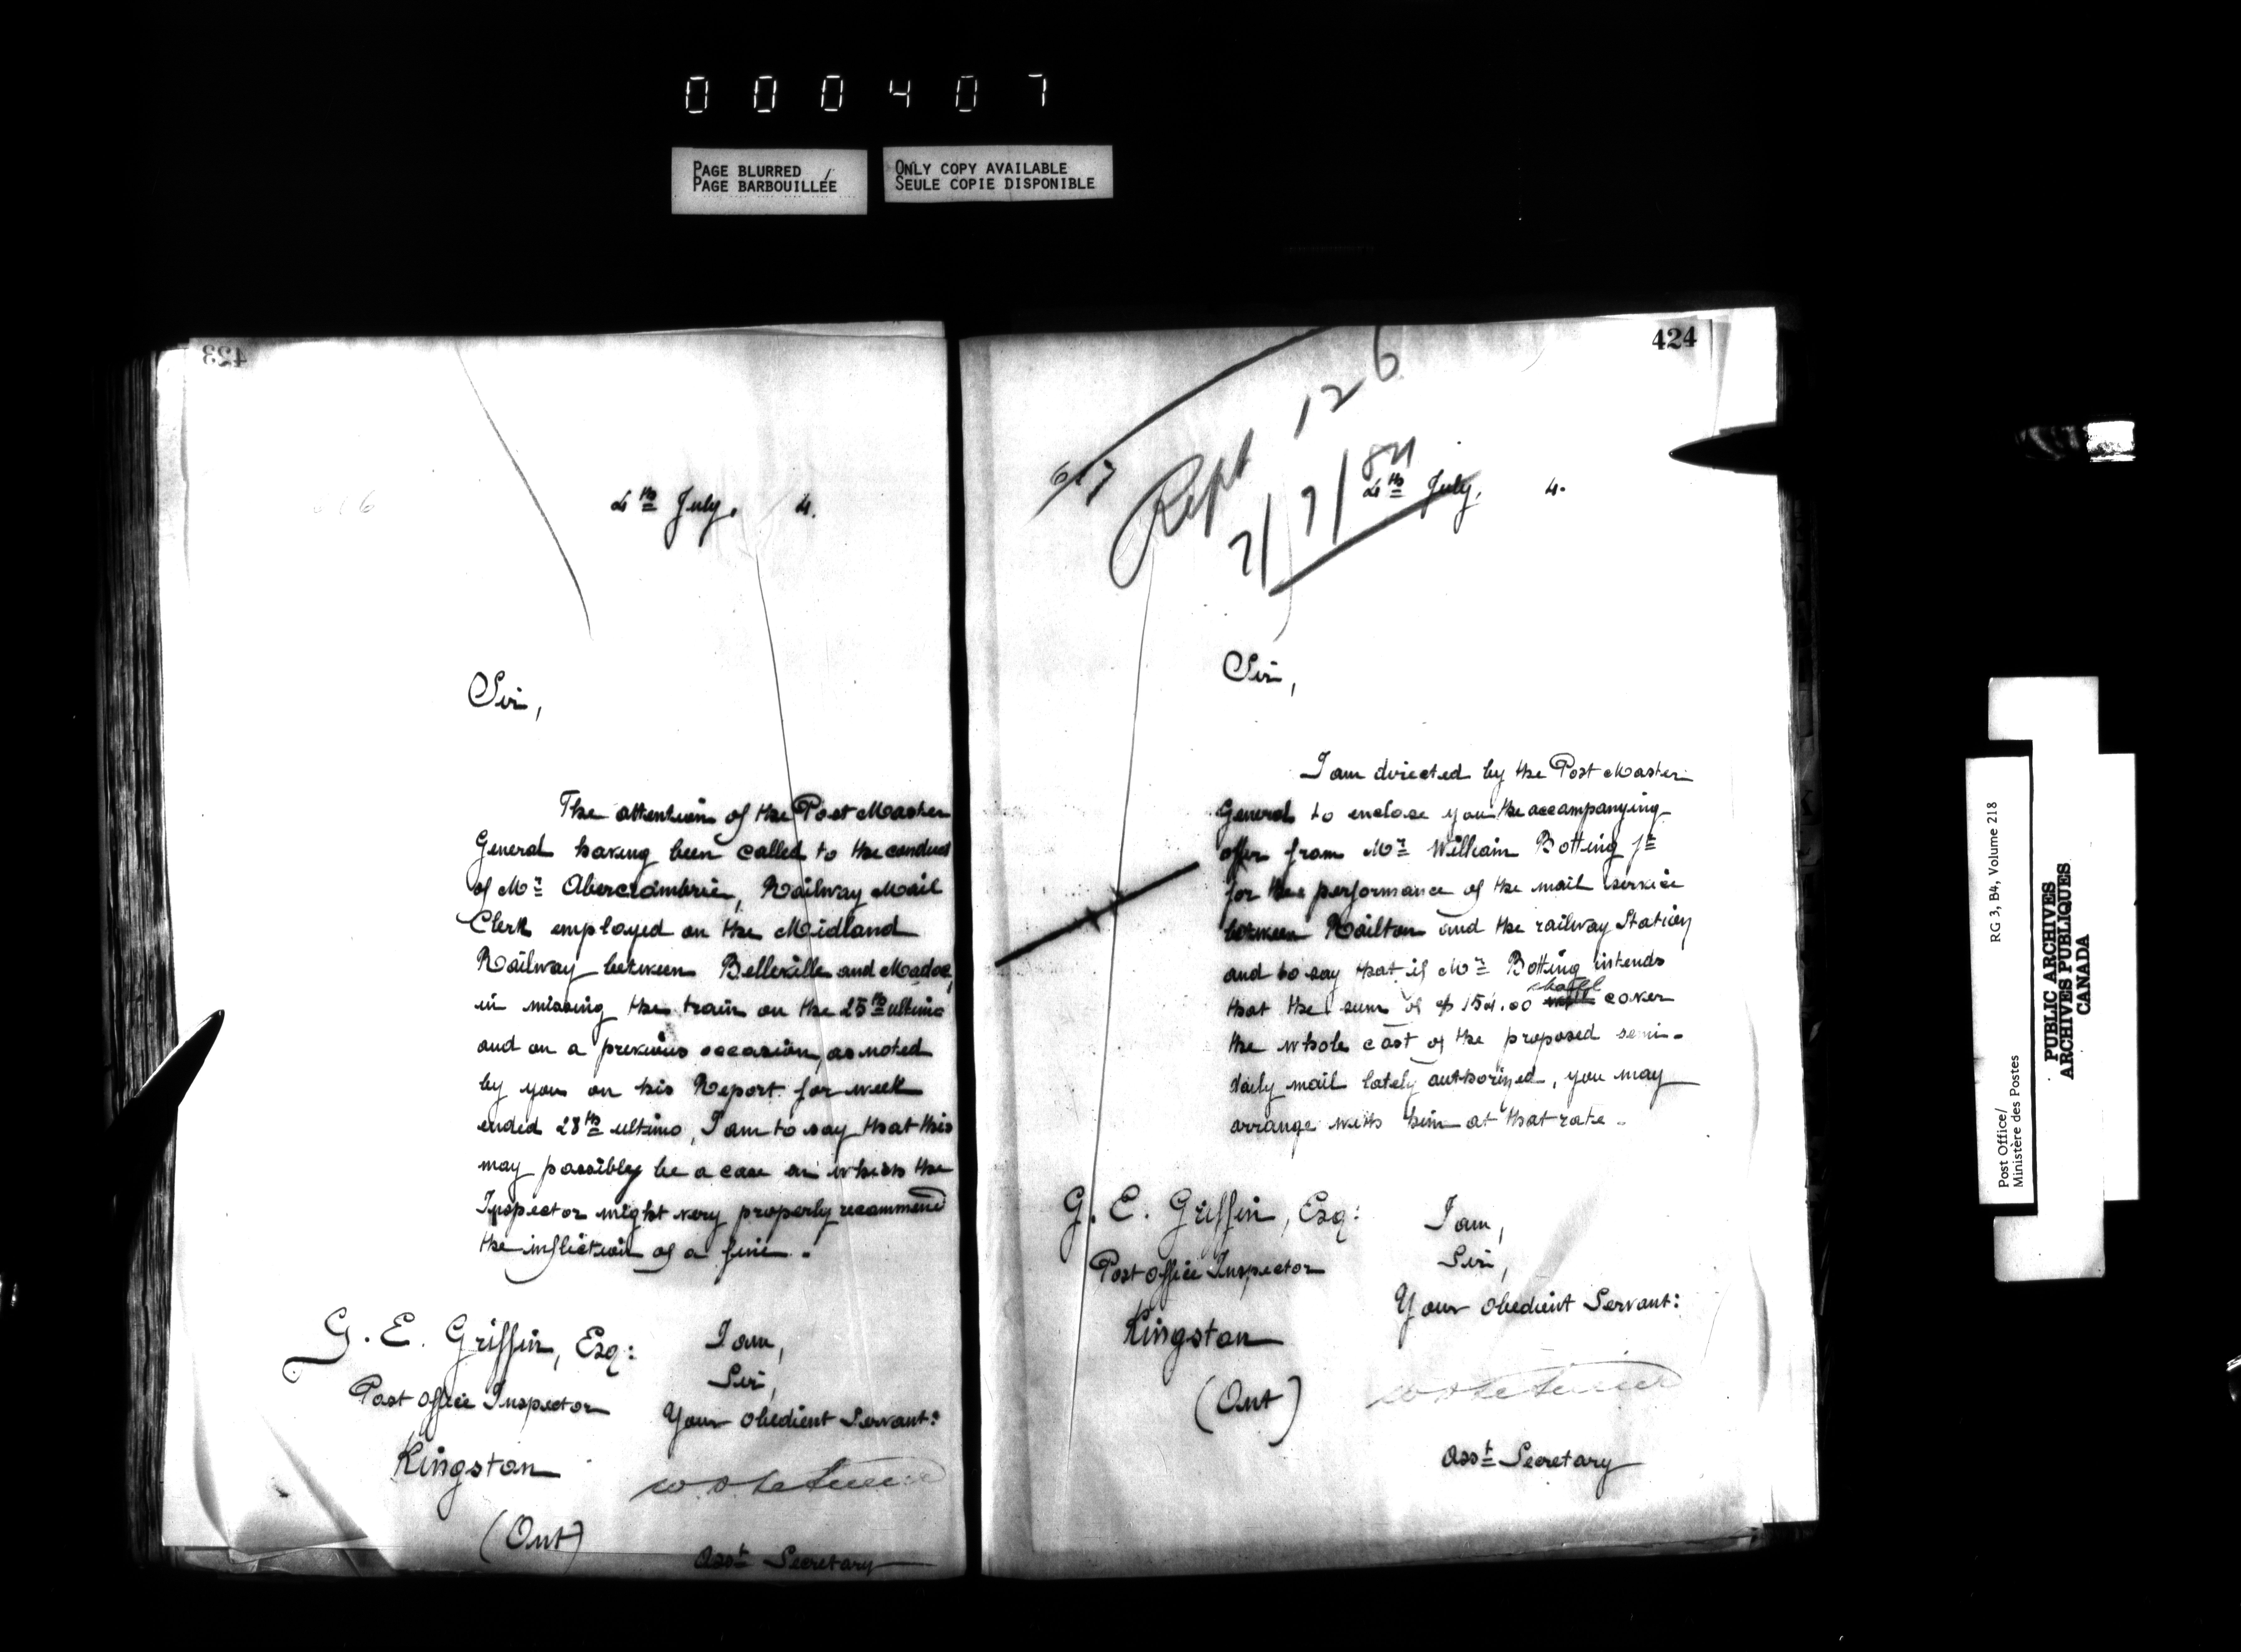 000407
PAGE BLURRED
PAGE BARBOUILLÉE
ONLY COPY AVAILABLE
SEULE COPIE DISPONIBLE
423
616
4th July, 4.
Sir,
The attention of the Post Master
General having been called to the conduct
of Mr Abercrombie, Railway Mail
Clerk employed on the Midland
Railway between Belleville and Madoc,
in missing the train on the 25th ultimo
and on a previous occasion, as noted
by you on his Report for week
ended 28th ultimo, I am to say that this
may possibly be a case in which the
Inspector might very properly recommend
the infliction of a fine.
G. E. Griffin, Esq:
Post Office Inspector
Kingston
(Ont)
I am,
Sir,
Your obedient Servant:
Asst Secretary
424
617
Rept 126
7/7/84
4th July, 4.
Sir,
I am directed by the Post Master
General to enclose you the accompanying
offer from Mr William Botting Jr
for the performance of the mail service
between Railton and the railway Station
and to say that if Mr Botting intends
that the sum of $154.00 shall cover
the whole cost of the proposed semi-
daily mail lately authorized, you may
arrange with him at that rate.
G. E. Griffin, Esq:
Post Office Inspector
Kingston
(Ont)
I am,
Sir,
Your obedient Servant:
Asst Secretary
Post Office/
Ministère des Postes
RG 3, B4, Volume 218
PUBLIC ARCHIVES
ARCHIVES PUBLIQUES
CANADA